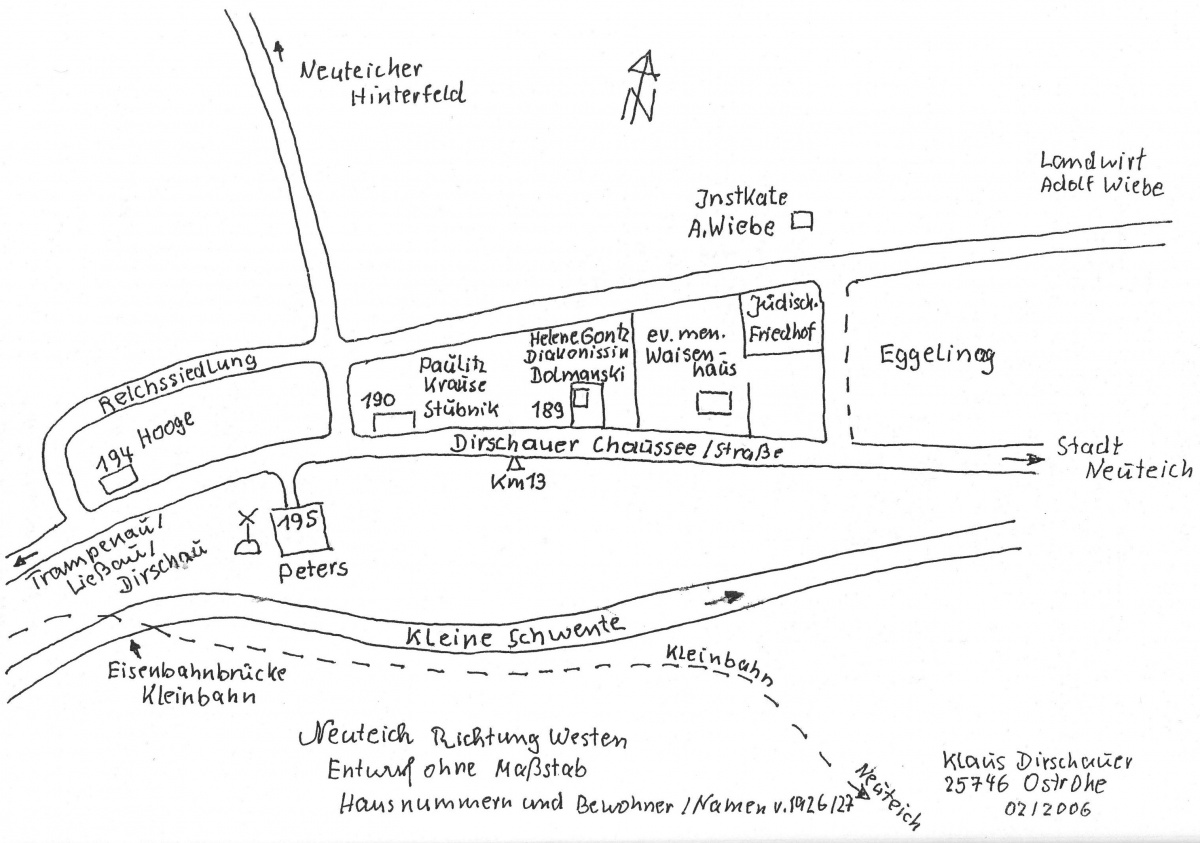 Neuteicher
Hinterfeld
N
Landwirt
Adolf Wiebe
Instkate
A. Wiebe
Jüdisch.
Friedhof
Helene Gontz
Diakonissin
Dolmanski
189
ev. men.
Waisen-
haus
Eggelinag
Reichssiedlung
Paulitz
Krause
Stübnik
190
Hooge
194
Dirschauer Chaussee/Straße
Km 13
Stadt
Neuteich
195
Peters
Trampenau/
Ließau/
Dirschau
Kleine Schwente
Kleinbahn
Eisenbahnbrücke
Kleinbahn
Neuteich
Neuteich Richtung Westen
Entwurf ohne Maßstab
Hausnummern und Bewohner/Namen v. 1926/27
Klaus Dirschauer
25746 Ostrohe
02/2006